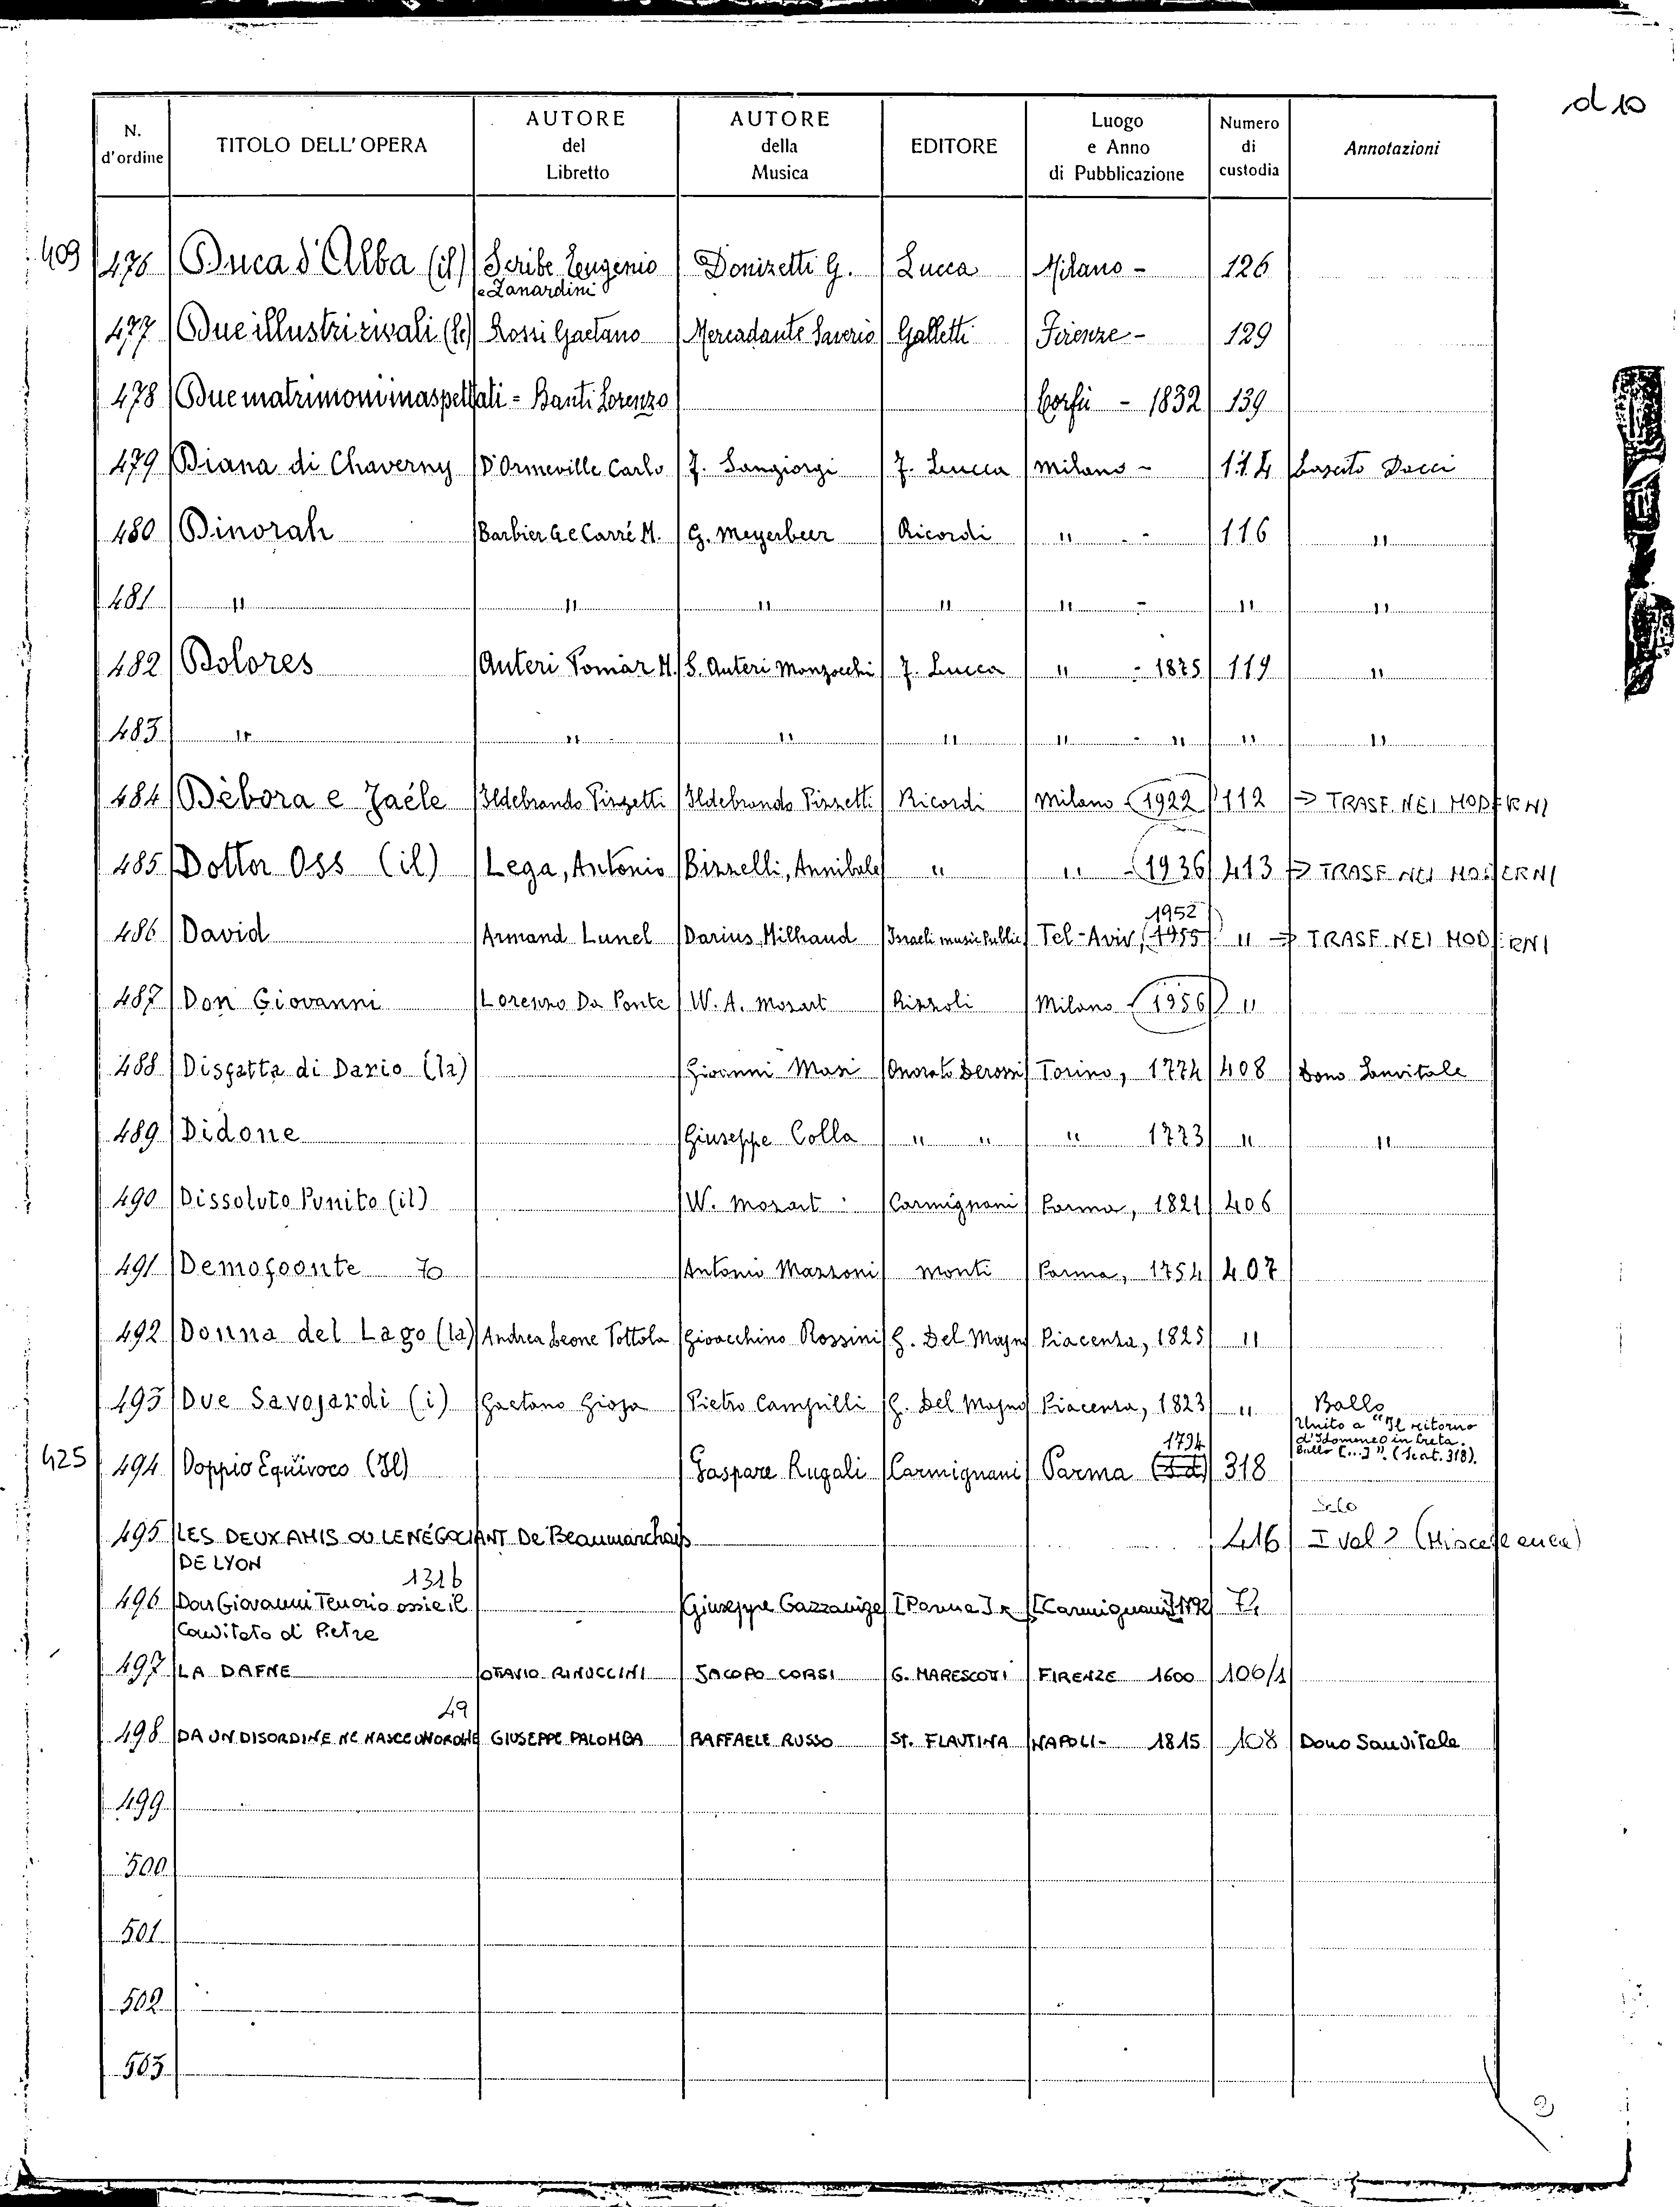 d 10
N. d'ordine | TITOLO DELL'OPERA | AUTORE del Libretto | AUTORE della Musica | EDITORE | Luogo e Anno di Pubblicazione | Numero di custodia | Annotazioni
409 476 Duca d'Alba (il) Scribe Eugenio e Zanardini Donizetti G. Lucca Milano - 126
477 Due illustri rivali (le) Rossi Gaetano Mercadante Saverio Galletti Firenze - 129
478 Due matrimoni inaspettati = Banti Lorenzo Corfù - 1832 139
479 Diana di Chaverny D'Ormeville Carlo F. Sangiorgi F. Lucca Milano - 114 Lascito Dacci
480 Dinorah Barbier G e Carré M. G. Meyerbeer Ricordi " - - 116 "
481 " " " " " - " "
482 Dolores Auteri Pomàr M. S. Auteri Manzocchi F. Lucca " - 1875 119 "
483 " " " " " - " " "
484 Dèbora e Jaéle Ildebrando Pizzetti Ildebrando Pizzetti Ricordi Milano - 1922 112 => TRASF. NEI MODERNI
485 Dottor Oss (il) Lega, Antonio Bizzelli, Annibale " " - 1936 413 => TRASF. NEI MODERNI
1952
486 David Armand Lunel Darius Milhaud Israeli music Public Tel-Aviv, (1955) " => TRASF. NEI MODERNI
487 Don Giovanni Lorenzo Da Ponte W. A. Mozart Rizzoli Milano - 1956 "
488 Disfatta di Dario (la) Giovanni Masi Onorato Derossi Torino, 1774 408 Dono Sanvitale
489 Didone Giuseppe Colla " " " 1773 " "
490 Dissoluto Punito (il) W. Mozart Carmignani Parma, 1821 406
491 Demofoonte 70 Antonio Mazzoni Monti Parma, 1754 407
492 Donna del Lago (la) Andrea Leone Tottola Giovacchino Rossini G. Del Majno Piacenza, 1825 "
493 Due Savojardi (i) Gaetano Gioja Pietro Campilli G. Del Majno Piacenza, 1823 " Ballo
Unito a "Il ritorno
d'Idomeneo in Creta.
Ballo [...]". (Scat. 318).
1794
425 494 Doppio Equivoco (Il) Gaspare Rugali Carmignani Parma 318
Solo
495 LES DEUX AMIS OU LE NÉGOCIANT De Beaumarchais 416 I vol? (Miscellanea)
DE LYON
1316
496 Don Giovanni Tenorio ossie il Giuseppe Gazzaniga [Parma] [Carmignani] 1792
Convitato di Pietra
497 LA DAFNE OTTAVIO RINUCCINI JACOPO CORSI G. MARESCOTTI FIRENZE 1600 106/1
49
498 DA UN DISORDINE NE NASCE UN ORDINE GIUSEPPE PALOMBA RAFFAELE RUSSO St. FLAUTINA NAPOLI - 1815 108 Dono Sanvitale
499
500
501
502
503